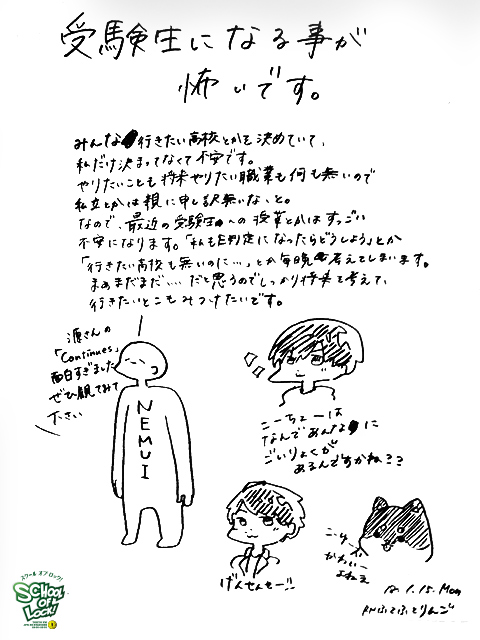 受験生になる事が
怖いです。
みんな行きたい高校とかを決めていて、
私だけ決まってなくて不安です。
やりたいことも将来やりたい職業も何も無いので
私立とかは親に申し訳無いな、と。
なので、最近の受験生への授業とかはすっごい
不安になります。「私もE判定になったらどうしよう」とか
「行きたい高校も無いのに…」とか毎晩考えてしまいます。
まぁまだまだ…、だと思うのでしっかり将来を考えて、
行きたいとこもみつけたいです。
源さんの
「Continues」
面白すぎました
ぜひ観てみて
下さい
NEMUI
こーちょーは
なんであんなに
ごいりょくが
あるんですかね??
げんせんせー!!
かわいー
よねぇ
1.15. Mon
RNふてふてりんご
スクールオブロック!
SCHOOL
OF
LOCK!